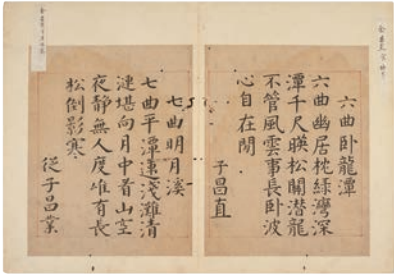 六曲卧龍潭
六曲幽居枕綠灣深
潭千尺暎松關潛龍
不管風雲事長卧波
心自在閒
子昌直
七曲明月溪
七曲平潭連淺灘清
漣堪向月中看山空
夜靜無人度唯有長
松倒影寒
從子昌業